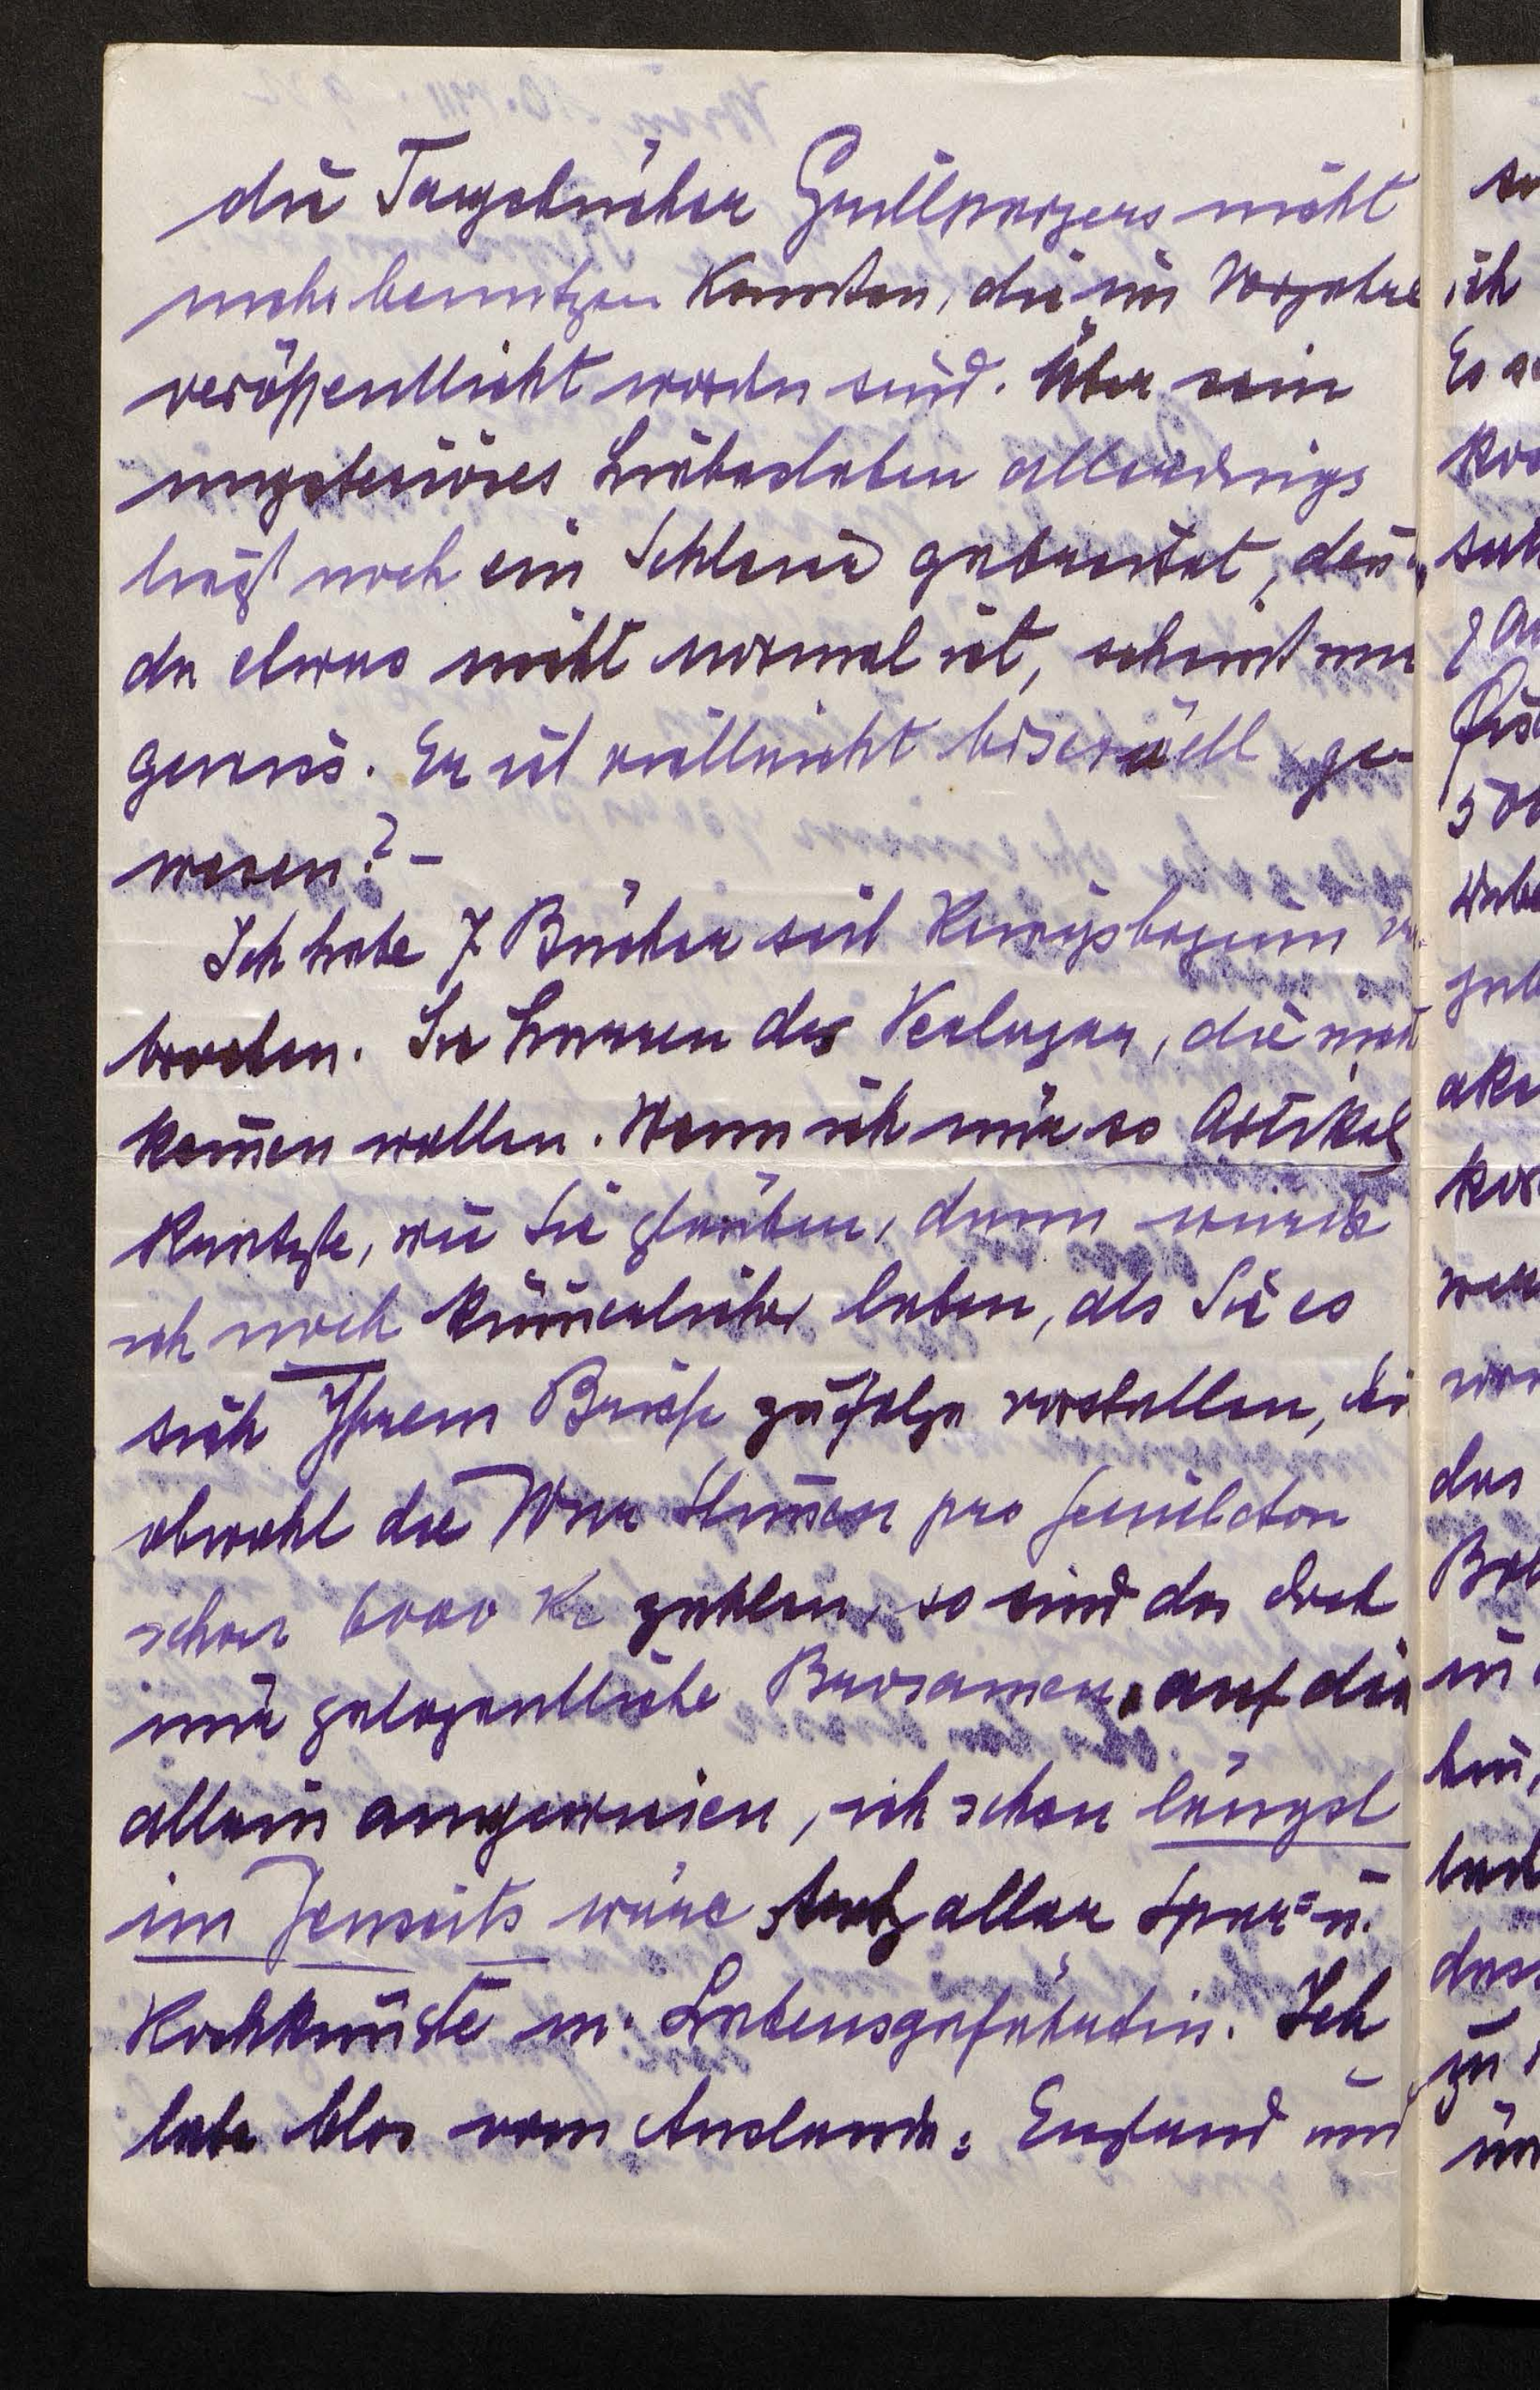 die Tagebücher Grillparzers nicht
mehr benutzen konnten, die im Vorjahre
veröffentlicht worden sind. Über sein
mysteriöses Liebesleben allerdings
liegt noch ein Schleier gebreitet, dass
da etwas nicht normal ist, scheint mir
gewiss. Er ist vielleicht bisexuell ge-
wesen? –
Ich habe 7 Bücher seit Kriegsbeginn
Sie harren des Verlegers, die nicht
kommen wollen. Wenn ich nur so Artikel
kuntzte, wie Sie glauben, dann würde
ich noch kümmerlicher leben, als Sie es
sich Ihrem Briefe zufolge vorstellen,
obwohl die Wiener Stimmen pro Feuilleton
schon 6000 Kr zahlen, so sind das doch
nur gelegentliche Brosamen, auf die
allein angewiesen, ich schon längst
im Jenseits wäre trotz aller Spar- u.
Kochkünste m. Lebensgefährtin. Ich
lebe blos vom Auslande: England und